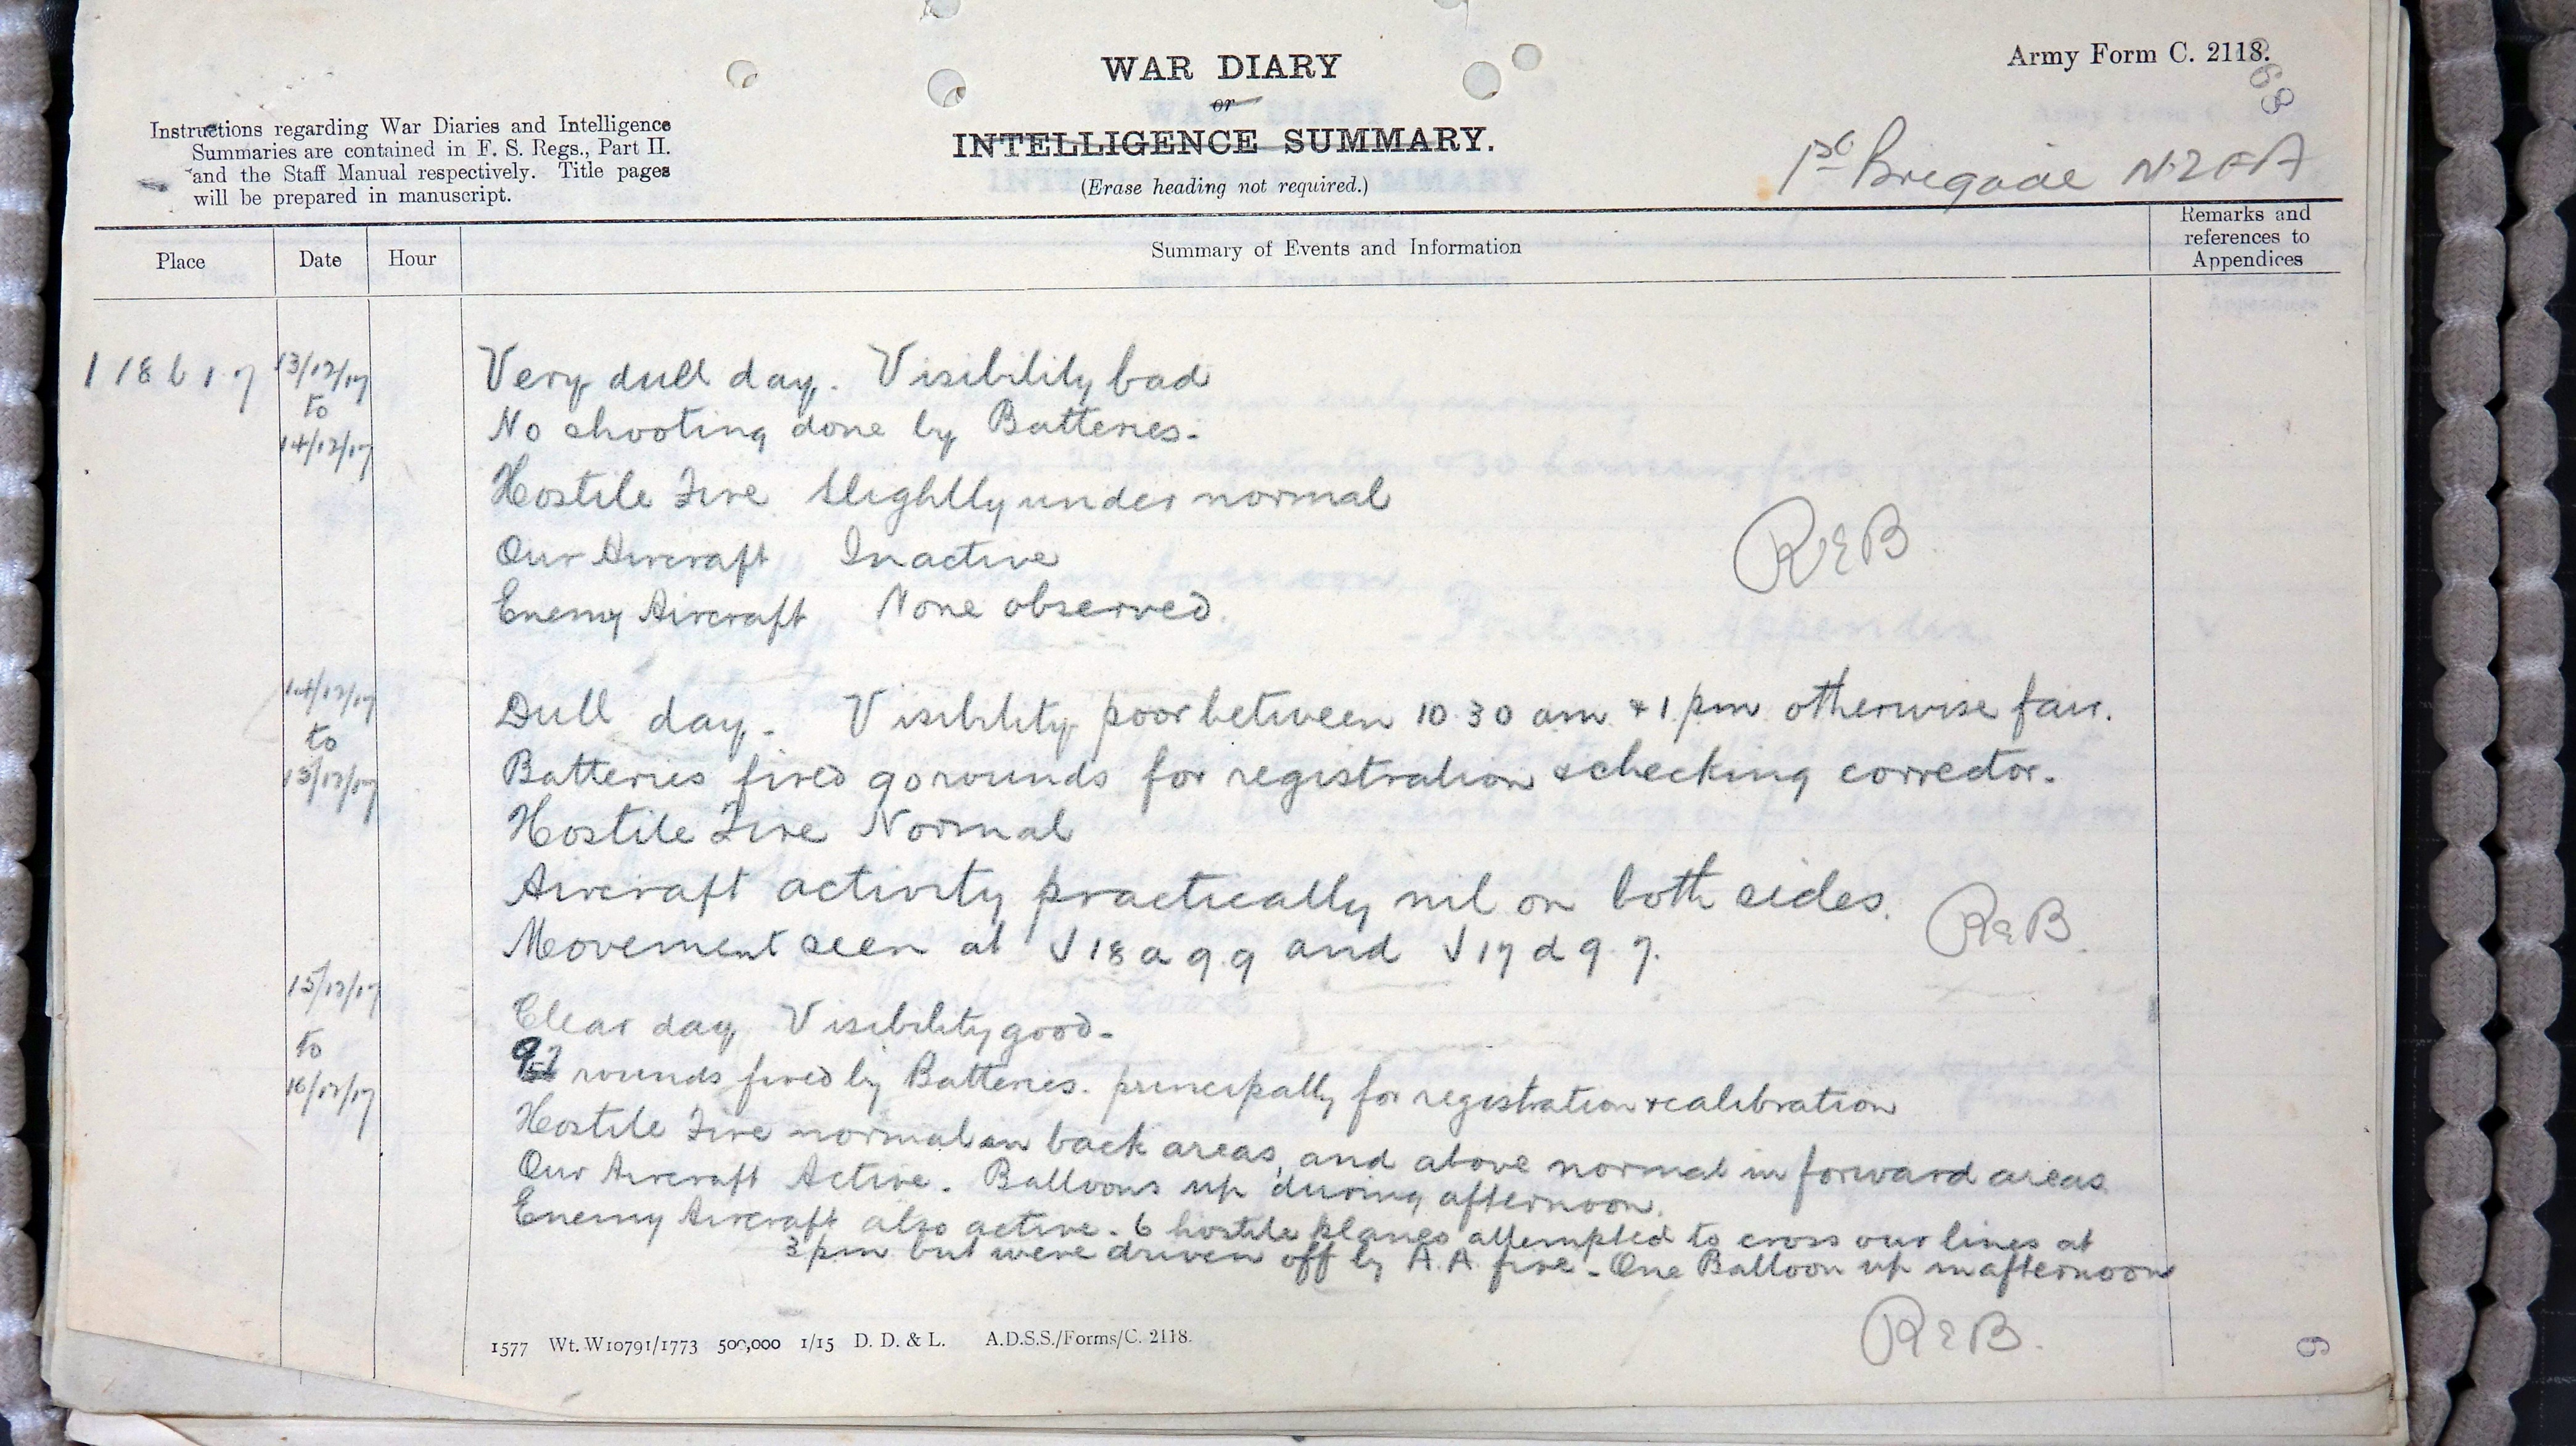 WAR DIARY
or
INTELLIGENCE SUMMARY.
(Erase heading not required.)
Army Form C. 2118.
Instructions regarding War Diaries and Intelligence
Summaries are contained in F. S. Regs., Part II.
and the Staff Manual respectively. Title pages
will be prepared in manuscript.
1st Brigade NZFA
Place Date Hour Summary of Events and Information Remarks and
references to
Appendices
I 18 b 1.7 13/12/17 Very dull day. Visibility bad
to
No shooting done by Batteries.
14/12/17
Hostile Fire Slightly under normal
Our Aircraft Inactive
REB
Enemy Aircraft None observed.
14/12/17
Dull day. Visibility poor between 10.30 am & 1 pm otherwise fair.
to
15/12/17 Batteries fired 90 rounds for registration & checking corrector.
Hostile Fire Normal
Aircraft activity practically nil on both sides.
REB.
Movement seen at J 18 a 9.9 and J 17 d 9.7.
15/12/17
Clear day Visibility good.
to
rounds fired by Batteries. principally for registration & calibration
16/12/17
Hostile Fire normal in back areas, and above normal in forward areas
Our Aircraft Active. Balloons up during afternoon.
Enemy Aircraft also active. 6 hostile planes attempted to cross our lines at
3 pm but were driven off by A.A. fire. One Balloon up in afternoon
REB.
1577 Wt. W10791/1773 500,000 1/15 D. D. & L. A.D.S.S./Forms/C. 2118.